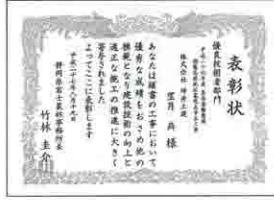 表彰状
優良技術者部門
株式会社
様
あなたは頭書の工事において
優秀な成績をおさめ他の
模範となり建設技術の向上と
適正な施工の推進に大きく
寄与されました
よってここに表彰します
平成二十七年八月十九日
静岡県富士農林事務所長
竹林 圭介